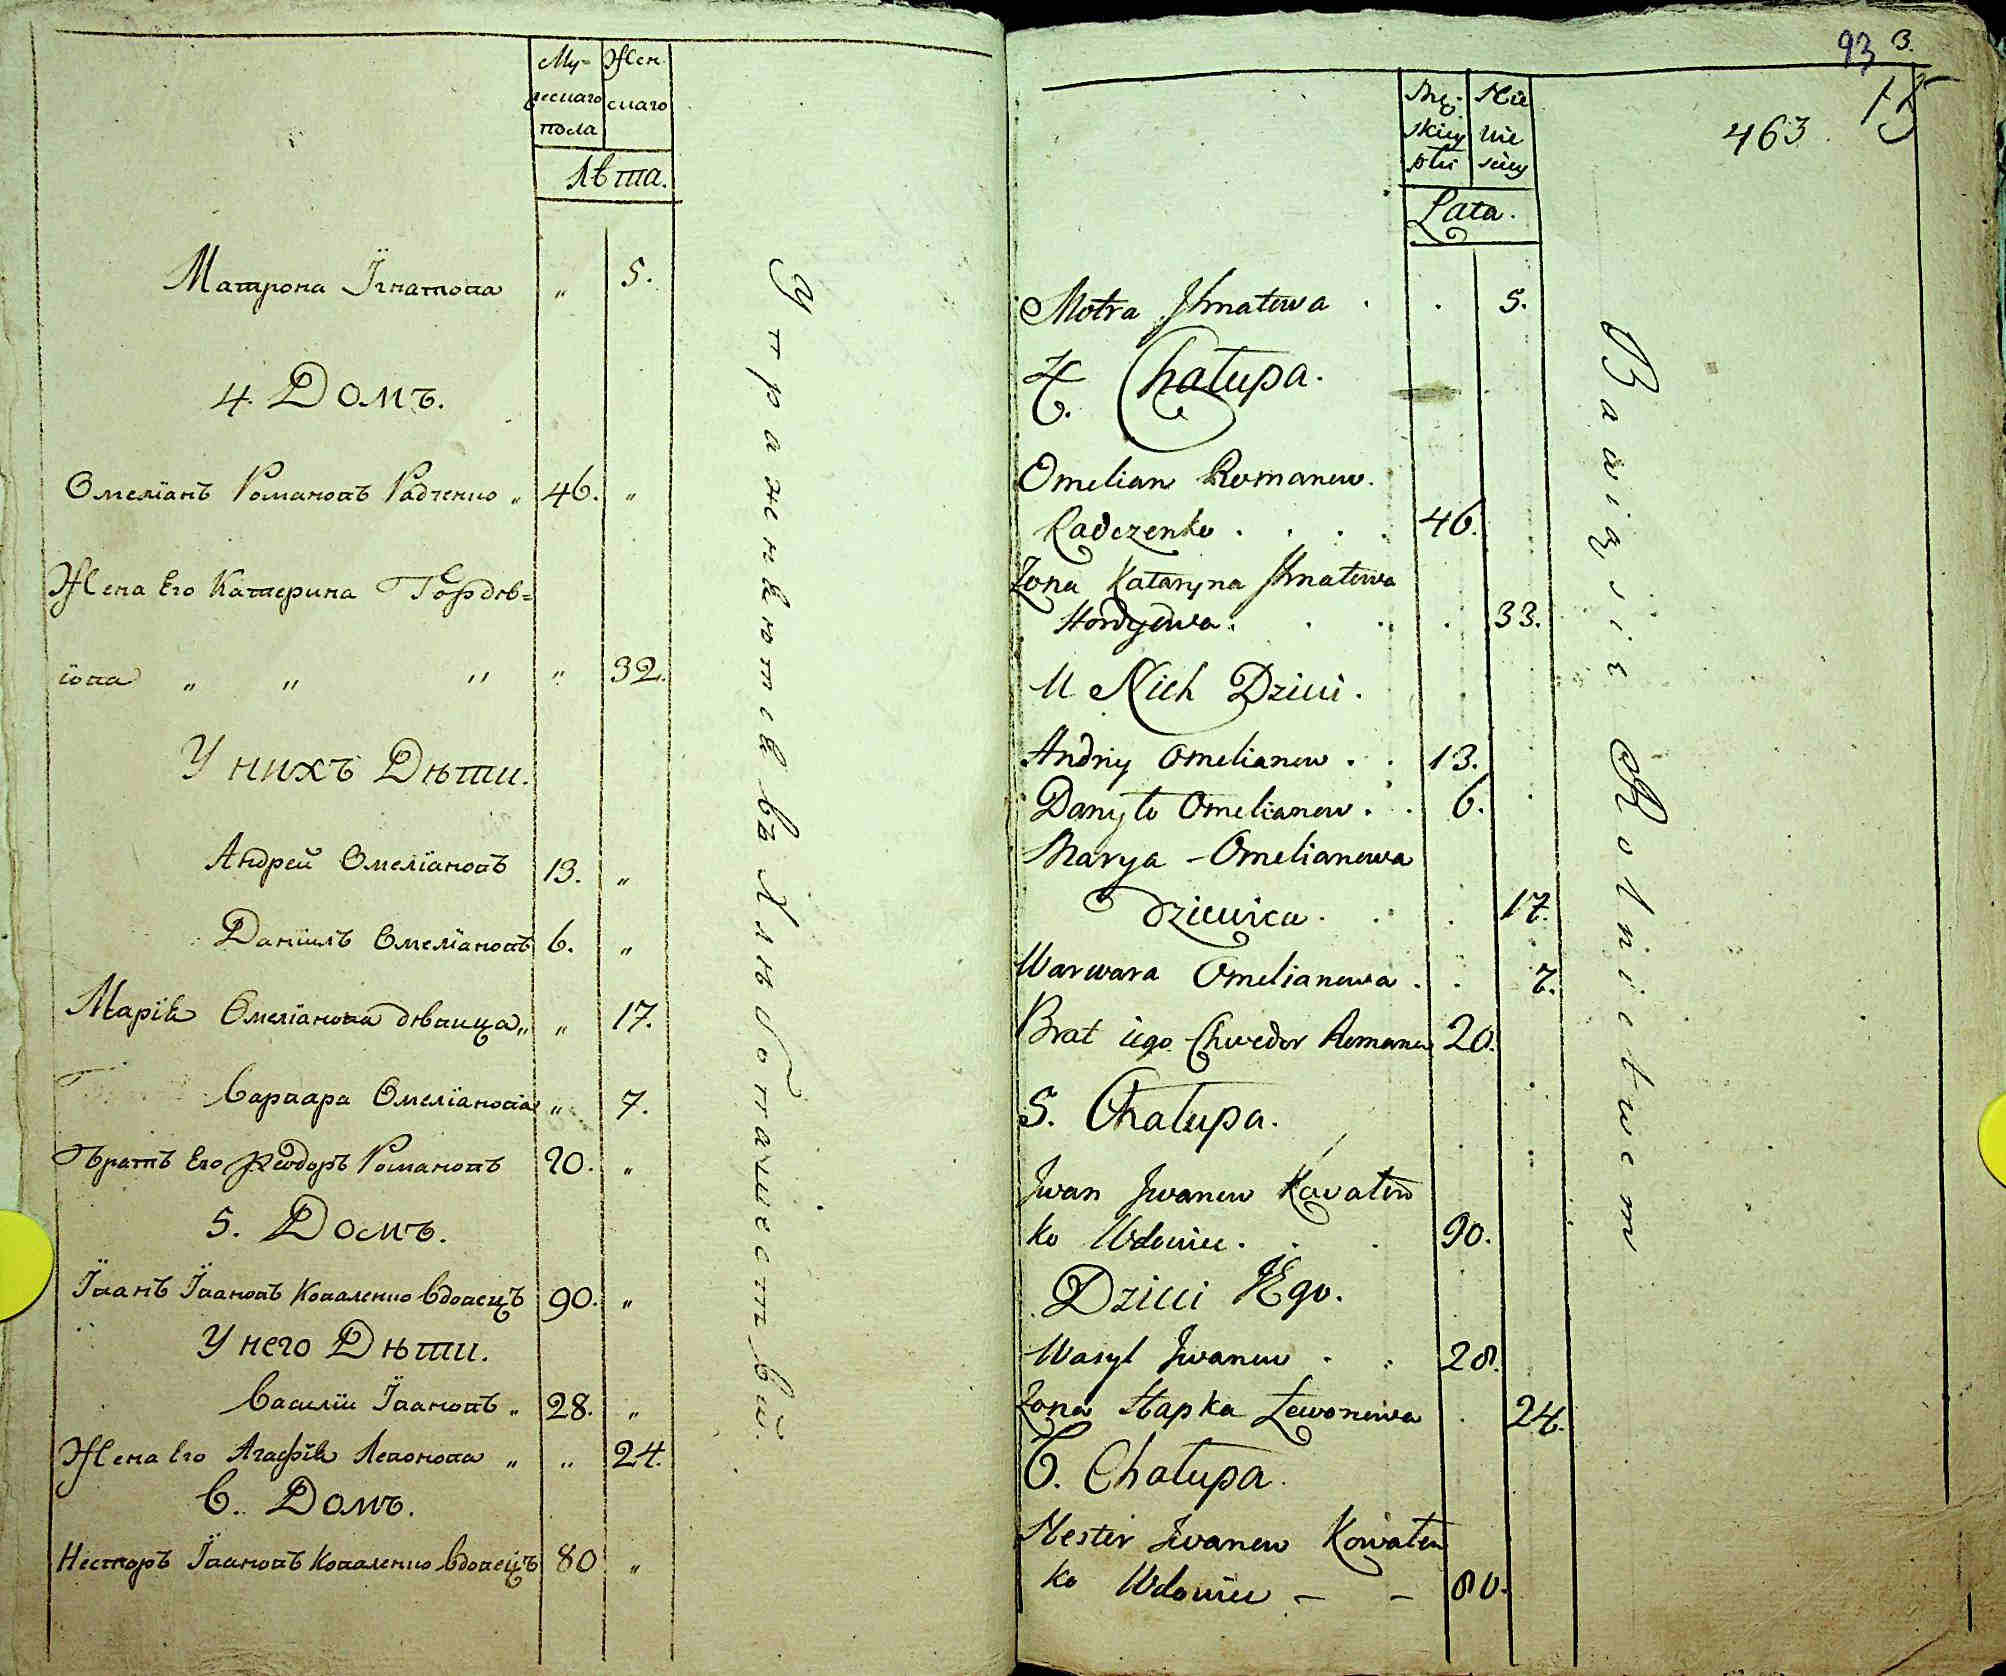 Му- Жен
жескаго скаго
пола
Лѣта.
Матрона Їгнатова „ 5.
4. Домъ.
Омелїанъ Романовъ Радченко „ 46. „
Жена Его Катерина Гордѣ=
ѣова „ „ „ „ 32.
У нихъ Дѣти.
Андрей Омелїановъ 13. „
Данїилъ Омелїановъ 6. „
Марїя Омелїанова дѣвица „ „ 17.
Варвара Омелїанова „ 7.
Братъ Его Ѳеодоръ Романовъ 20. „
5. Домъ.
Їванъ Ївановъ Коваленко Вдовецъ 90. „
У него Дѣти.
Василїй Ївановъ „ 28. „
Жена Его Агафїя Левонова „ „ 24.
6. Домъ.
Несторъ Ївановъ Коваленко Вдовецъ 80 „
Упражняются въ Хлѣбопашествѣ.
93 3.
15
463
Mę- Xie
skiey nie
płci skiey
Lata.
Motra Ihnatowa . . 5.
4. Chałupa.
Omelian Romanow.
Radczenko . . . . 46.
Żona Kataryna Ihnatowa
Hordyewa. . . . 33.
U Nich Dzieci.
Andriy Omelianow . . 13.
Danyło Omelianow . . 6.
Marya Omelianowa
Dziewica . . . 17.
Warwara Omelianowa . . 7.
Brat iego Chwedor Romanow 20.
5. Chałupa.
Iwan Iwanow Kowalen
ko Wdowiec . . . 90.
Dzieci Jego.
Wasyl Iwanow . . 28.
Żona Hapka Lewonowa . 24.
6. Chałupa.
Nester Iwanow Kowalen
ko Wdowiec – – 80.
Bawią sie Rolnictwem